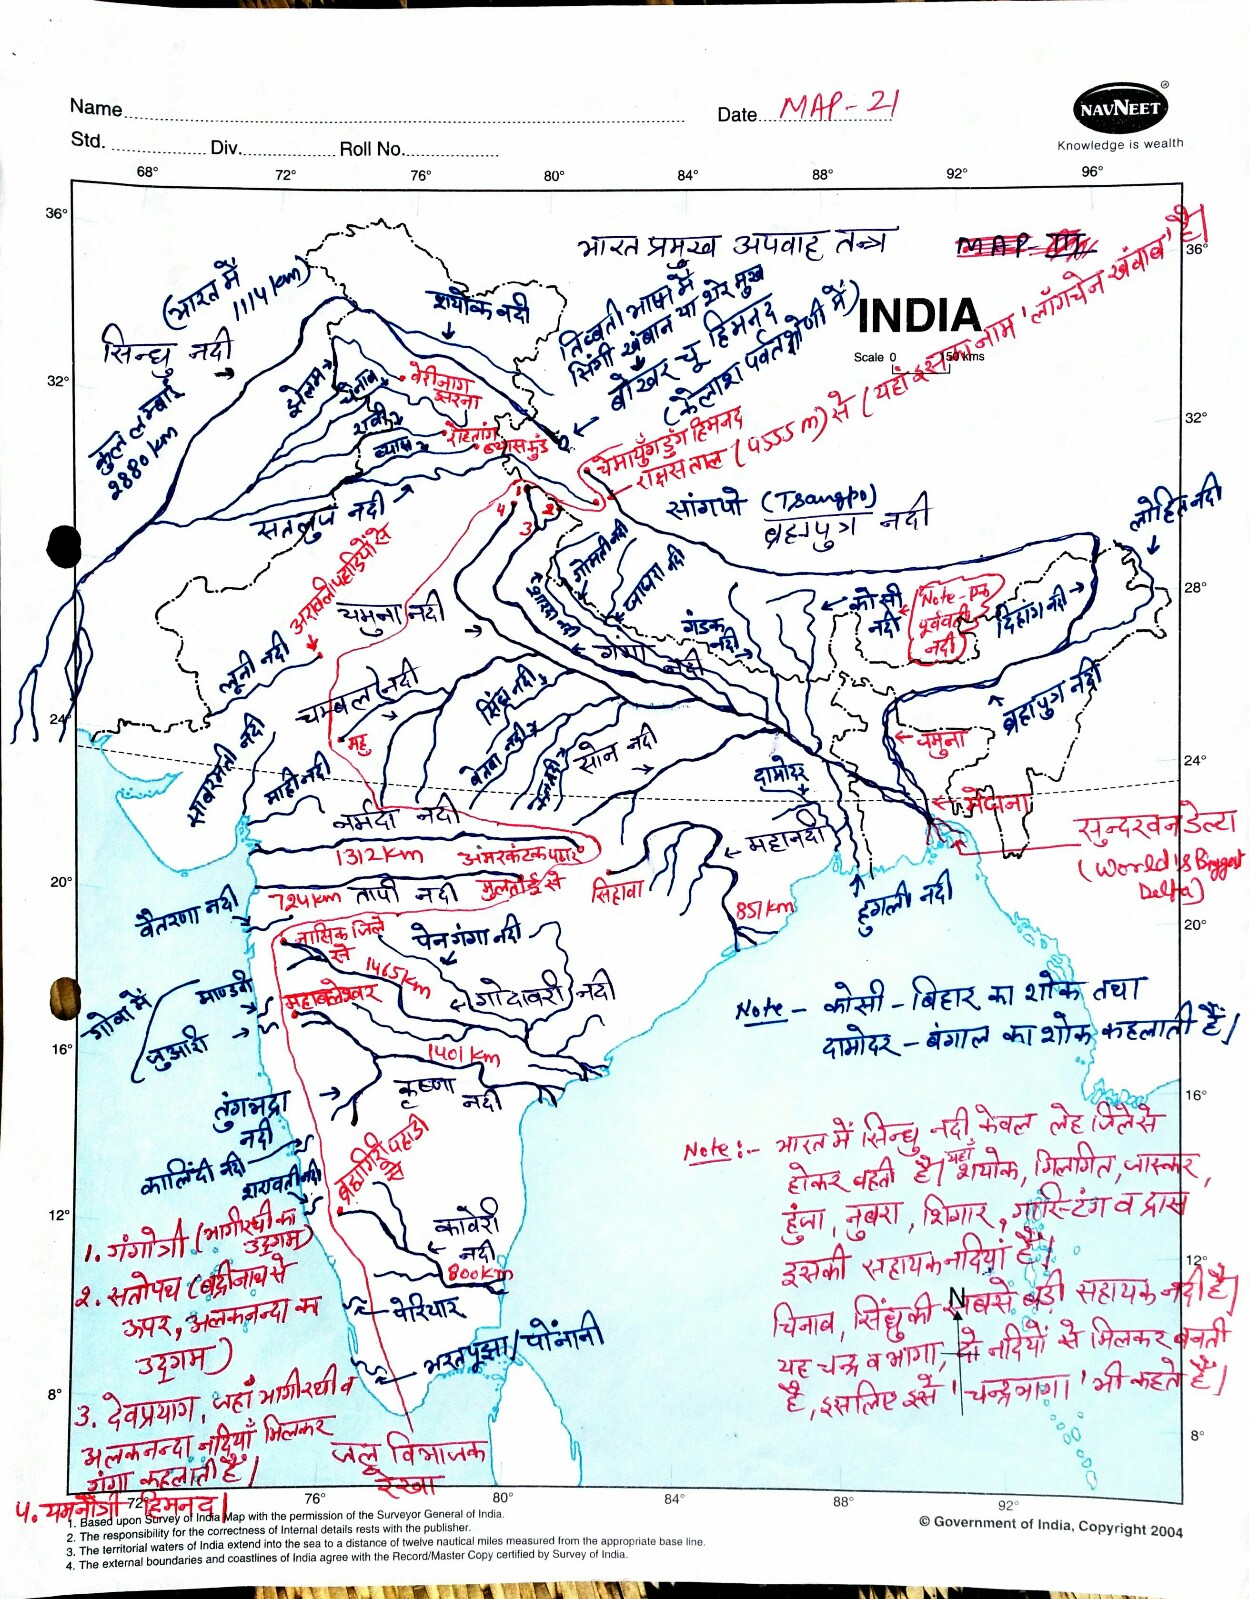 Name
Date MAP-21
NAVNEET
®
Knowledge is wealth
Std. Div. Roll No.
68° 72° 76° 80° 84° 88° 92° 96°
36°
36°
भारत प्रमुख अपवाह तन्त्र
INDIA
Scale 0 150 kms
(भारत में
1114 km)
सिन्धु नदी
कुल लम्बाई
2880 km
श्योक नदी
तिब्बती भाषा में
सिंगी खंबान या शेर मुख
बोखर चू हिमनद
(कैलाश पर्वत श्रेणी में)
32°
32°
झेलम
चिनाब
रावी
व्यास
वेरीनाग
झरना
रोहतांग
व्यासकुंड
चेमायुँगडुंग हिमनद
राक्षस ताल (4555 m) से (यहाँ इसका नाम 'लाँगचेन खंबाब' है।
सतलुज नदी
सांगपो (Tsangpo)
ब्रह्मपुत्र नदी
लोहित नदी
1
2
3
4
अरावली पहाड़ियों से
28°
28°
यमुना नदी
गोमती नदी
घाघरा नदी
शारदा नदी
गंडक
नदी
कोसी
नदी
Note - एक
पूर्ववर्ती
नदी
दिहांग नदी
लूनी नदी
गंगा नदी
चम्बल नदी
सिंध नदी
ब्रह्मपुत्र नदी
24°
24°
महु
बेतवा नदी
केन नदी
सोन नदी
जमुना
साबरमती नदी
माही नदी
दामोदर
मेघना
नर्मदा नदी
1312 km
अमरकंटक पठार
महानदी
सुन्दरवन डेल्टा
(World's Biggest
Delta)
20°
20°
724 km तापी नदी
मुलताई से
सिहावा
851 km
हुगली नदी
वैतरणा नदी
नासिक जिले
से
पेनगंगा नदी
1465 km
गोदावरी नदी
गोवा में
माण्डवी
जुआरी
महाबलेश्वर
Note - कोसी - बिहार का शोक तथा
दामोदर - बंगाल का शोक कहलाती हैं।
16°
16°
1401 km
कृष्णा
नदी
तुंगभद्रा
नदी
कालिंदी नदी
शरावती नदी
ब्रह्मगिरी पहाड़ी
से
Note:- भारत में सिन्धु नदी केवल लेह जिले से
होकर बहती है। यहाँ श्योक, गिलगित, जास्कर,
हुंजा, नुबरा, शिगार, गास्टिंग व द्रास
इसकी सहायक नदियां हैं।
चिनाब, सिंधु की सबसे बड़ी सहायक नदी है।
यह चन्द्र व भागा, दो नदियों से मिलकर बनती
है, इसलिए इसे 'चन्द्रभागा' भी कहते हैं।
N
12°
12°
कावेरी
नदी
800 km
पेरियार
भरतपूझा/पोंनानी
8°
8°
1. गंगोत्री (भागीरथी का
उद्गम)
2. सतोपथ (बद्रीनाथ से
ऊपर, अलकनन्दा का
उद्गम)
3. देवप्रयाग, जहाँ भागीरथी व
अलकनन्दा नदियाँ मिलकर
गंगा कहलाती है।
4. यमनोत्री हिमनद।
जल विभाजक
रेखा
72° 76° 80° 84° 88° 92°
1. Based upon Survey of India Map with the permission of the Surveyor General of India.
2. The responsibility for the correctness of Internal details rests with the publisher.
3. The territorial waters of India extend into the sea to a distance of twelve nautical miles measured from the appropriate base line.
4. The external boundaries and coastlines of India agree with the Record/Master Copy certified by Survey of India.
© Government of India, Copyright 2004